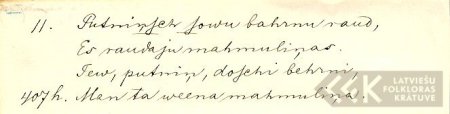 11. Putniņsch sowu bahrnu raud,
Es raudaju mahmuliņas.
Tew, putniņ, doschi behrni,
407h. Man ta weena mahmuliņa.
LATVIEŠU
FOLKLORAS
KRĀTUVE